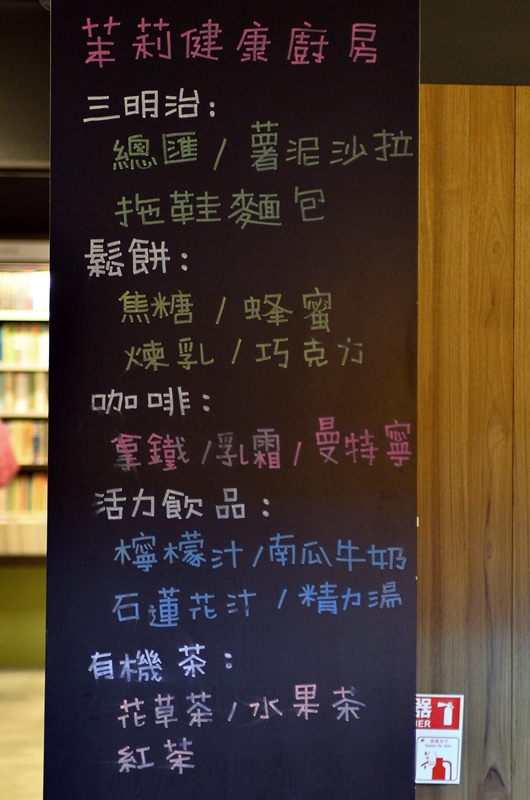 茉莉健康廚房
三明治:
總匯/薯泥沙拉
拖鞋麵包
鬆餅:
焦糖/蜂蜜
煉乳/巧克力
咖啡:
拿鐵/乳霜/曼特寧
活力飲品:
檸檬汁/南瓜牛奶
石蓮花汁/精力湯
有機茶:
花草茶/水果茶
紅茶
器